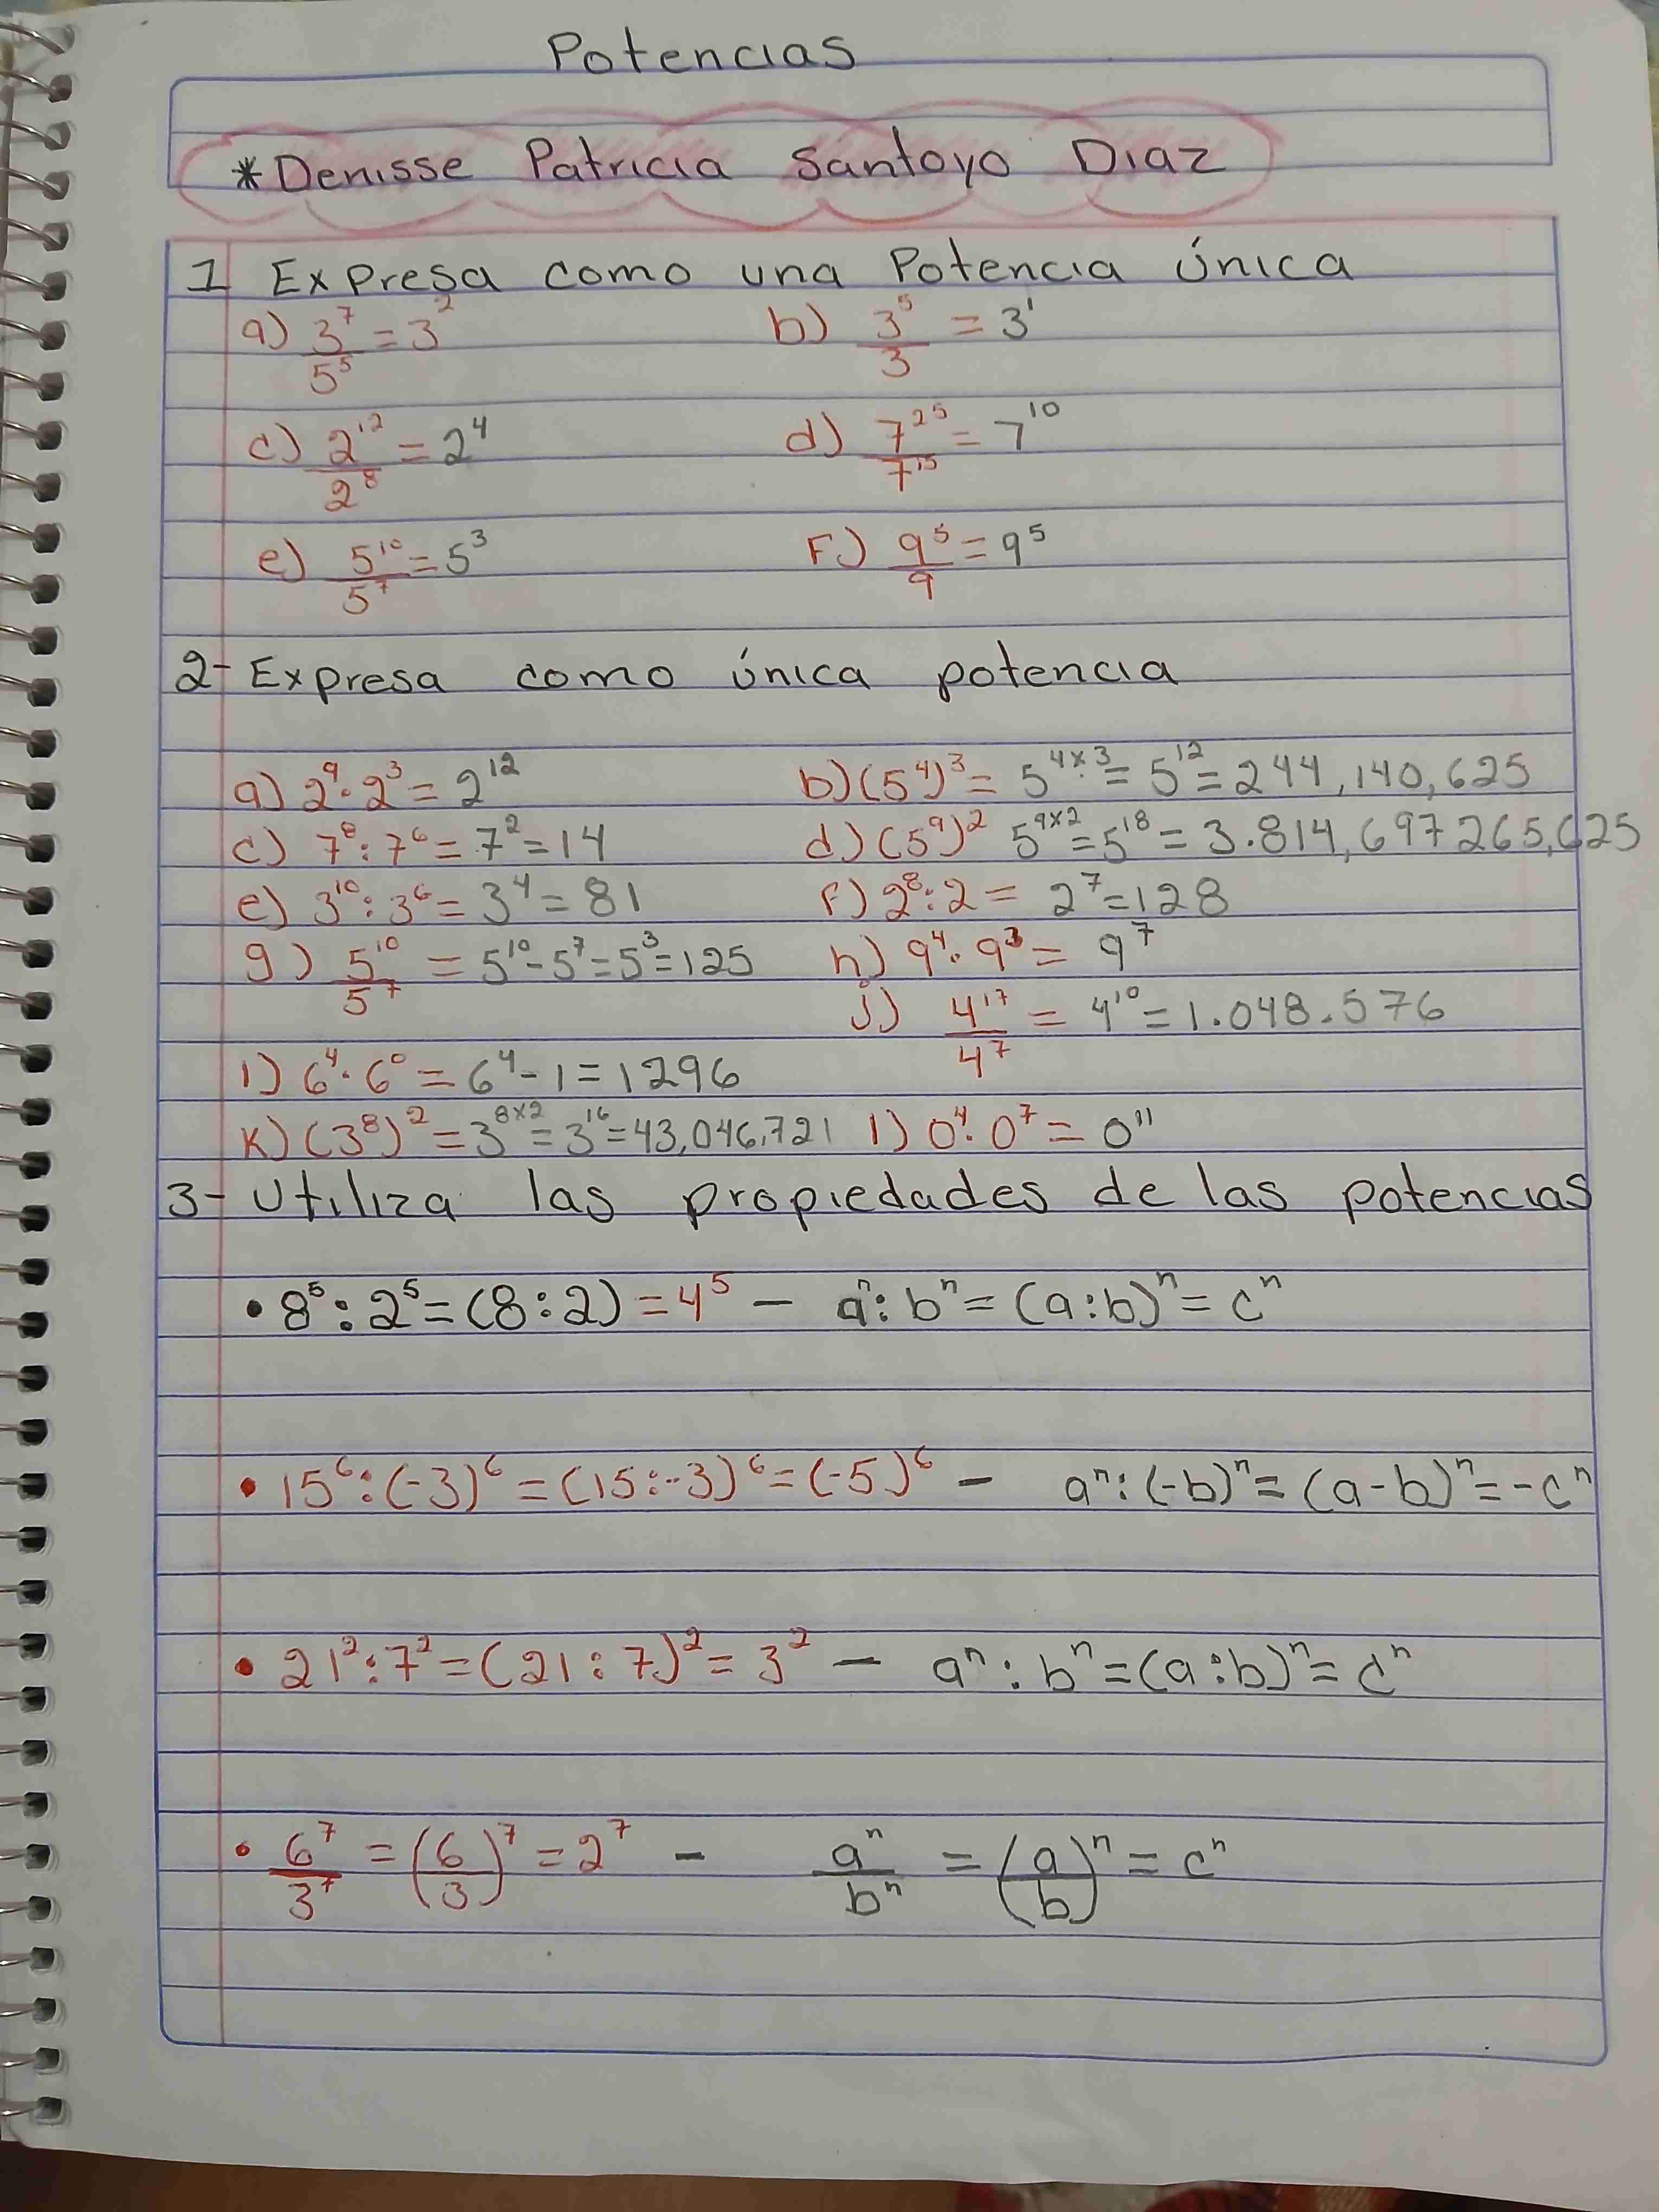 Potencias
*Denisse Patricia Santoyo Diaz
1 Expresa como una Potencia única
a) 3⁷/5⁵ = 3² b) 3⁵/3 = 3¹
c) 2¹²/2⁸ = 2⁴ d) 7²⁵/7¹⁵ = 7¹⁰
e) 5¹⁰/5⁷ = 5³ F) 9⁵/9 = 9⁵
2- Expresa como única potencia
a) 2⁹·2³ = 2¹² b) (5⁴)³ = 5⁴ˣ³ = 5¹² = 244,140,625
c) 7⁸:7⁶ = 7² = 14 d) (5⁹)² 5⁹ˣ² = 5¹⁸ = 3.814,697265,625
e) 3¹⁰:3⁶ = 3⁴ = 81 f) 2⁸:2 = 2⁷ = 128
g) 5¹⁰/5⁷ = 5¹⁰-5⁷ = 5³ = 125 h) 9⁴·9³ = 9⁷
j) 4¹⁷/4⁷ = 4¹⁰ = 1.048.576
i) 6⁴·6⁰ = 6⁴-1 = 1296
K) (3⁸)² = 3⁸ˣ² = 3¹⁶ = 43,046,721 l) 0⁴·0⁷ = 0¹¹
3- Utiliza las propiedades de las potencias
• 8⁵:2⁵ = (8:2) = 4⁵ - aⁿ:bⁿ = (a:b)ⁿ = cⁿ
• 15⁶:(-3)⁶ = (15:-3)⁶ = (-5)⁶ - aⁿ:(-b)ⁿ = (a-b)ⁿ = -cⁿ
• 21²:7² = (21:7)² = 3² - aⁿ:bⁿ = (a:b)ⁿ = cⁿ
• 6⁷/3⁷ = (6/3)⁷ = 2⁷ - aⁿ/bⁿ = (a/b)ⁿ = cⁿ